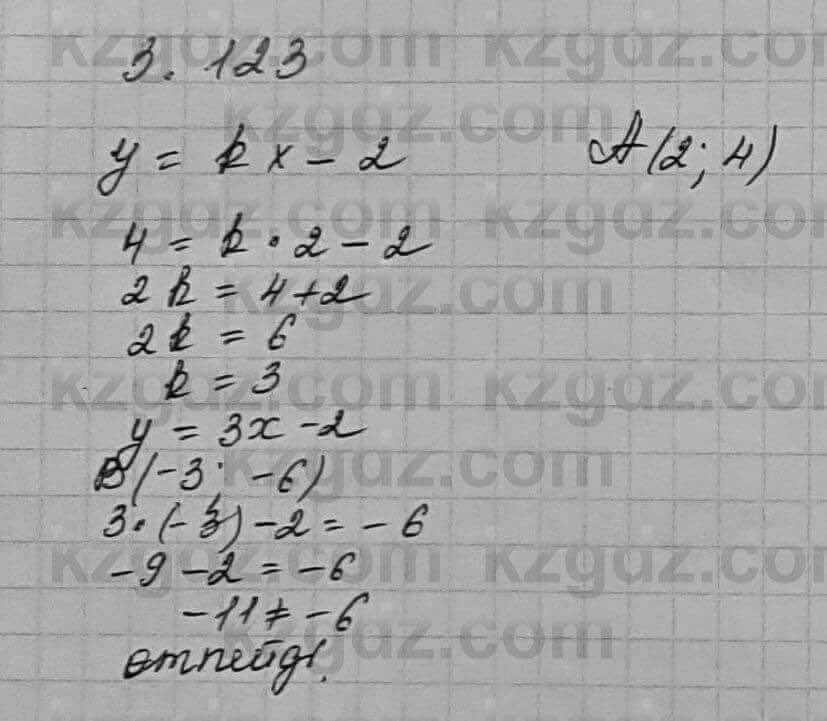 3. 123
y = kx - 2    A(2; 4)
4 = k • 2 - 2
2k = 4 + 2
2k = 6
k = 3
y = 3x - 2
B(-3; -6)
3 • (-3) - 2 = -6
-9 - 2 = -6
-11 ≠ -6
өтпейді.
kzgdz.com kzgdz.com
kzgdz.com
kzgdz.com kzgdz.com
kzgdz.com
kzgdz.com kzgdz.com
kzgdz.com
kzgdz.com kzgdz.com
kzgdz.com